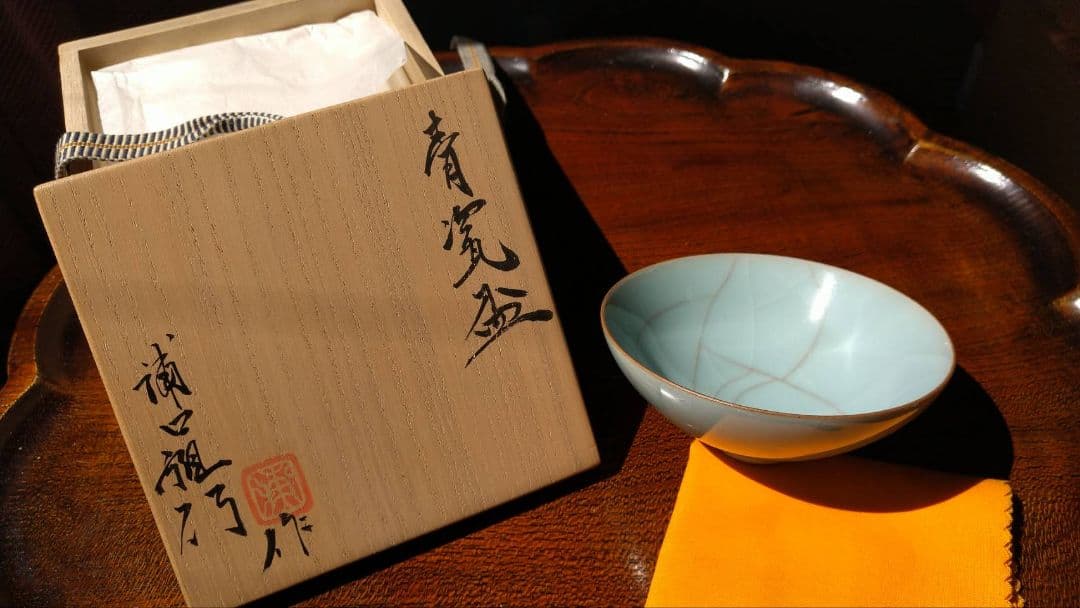 青瓷盃
浦口雅行作